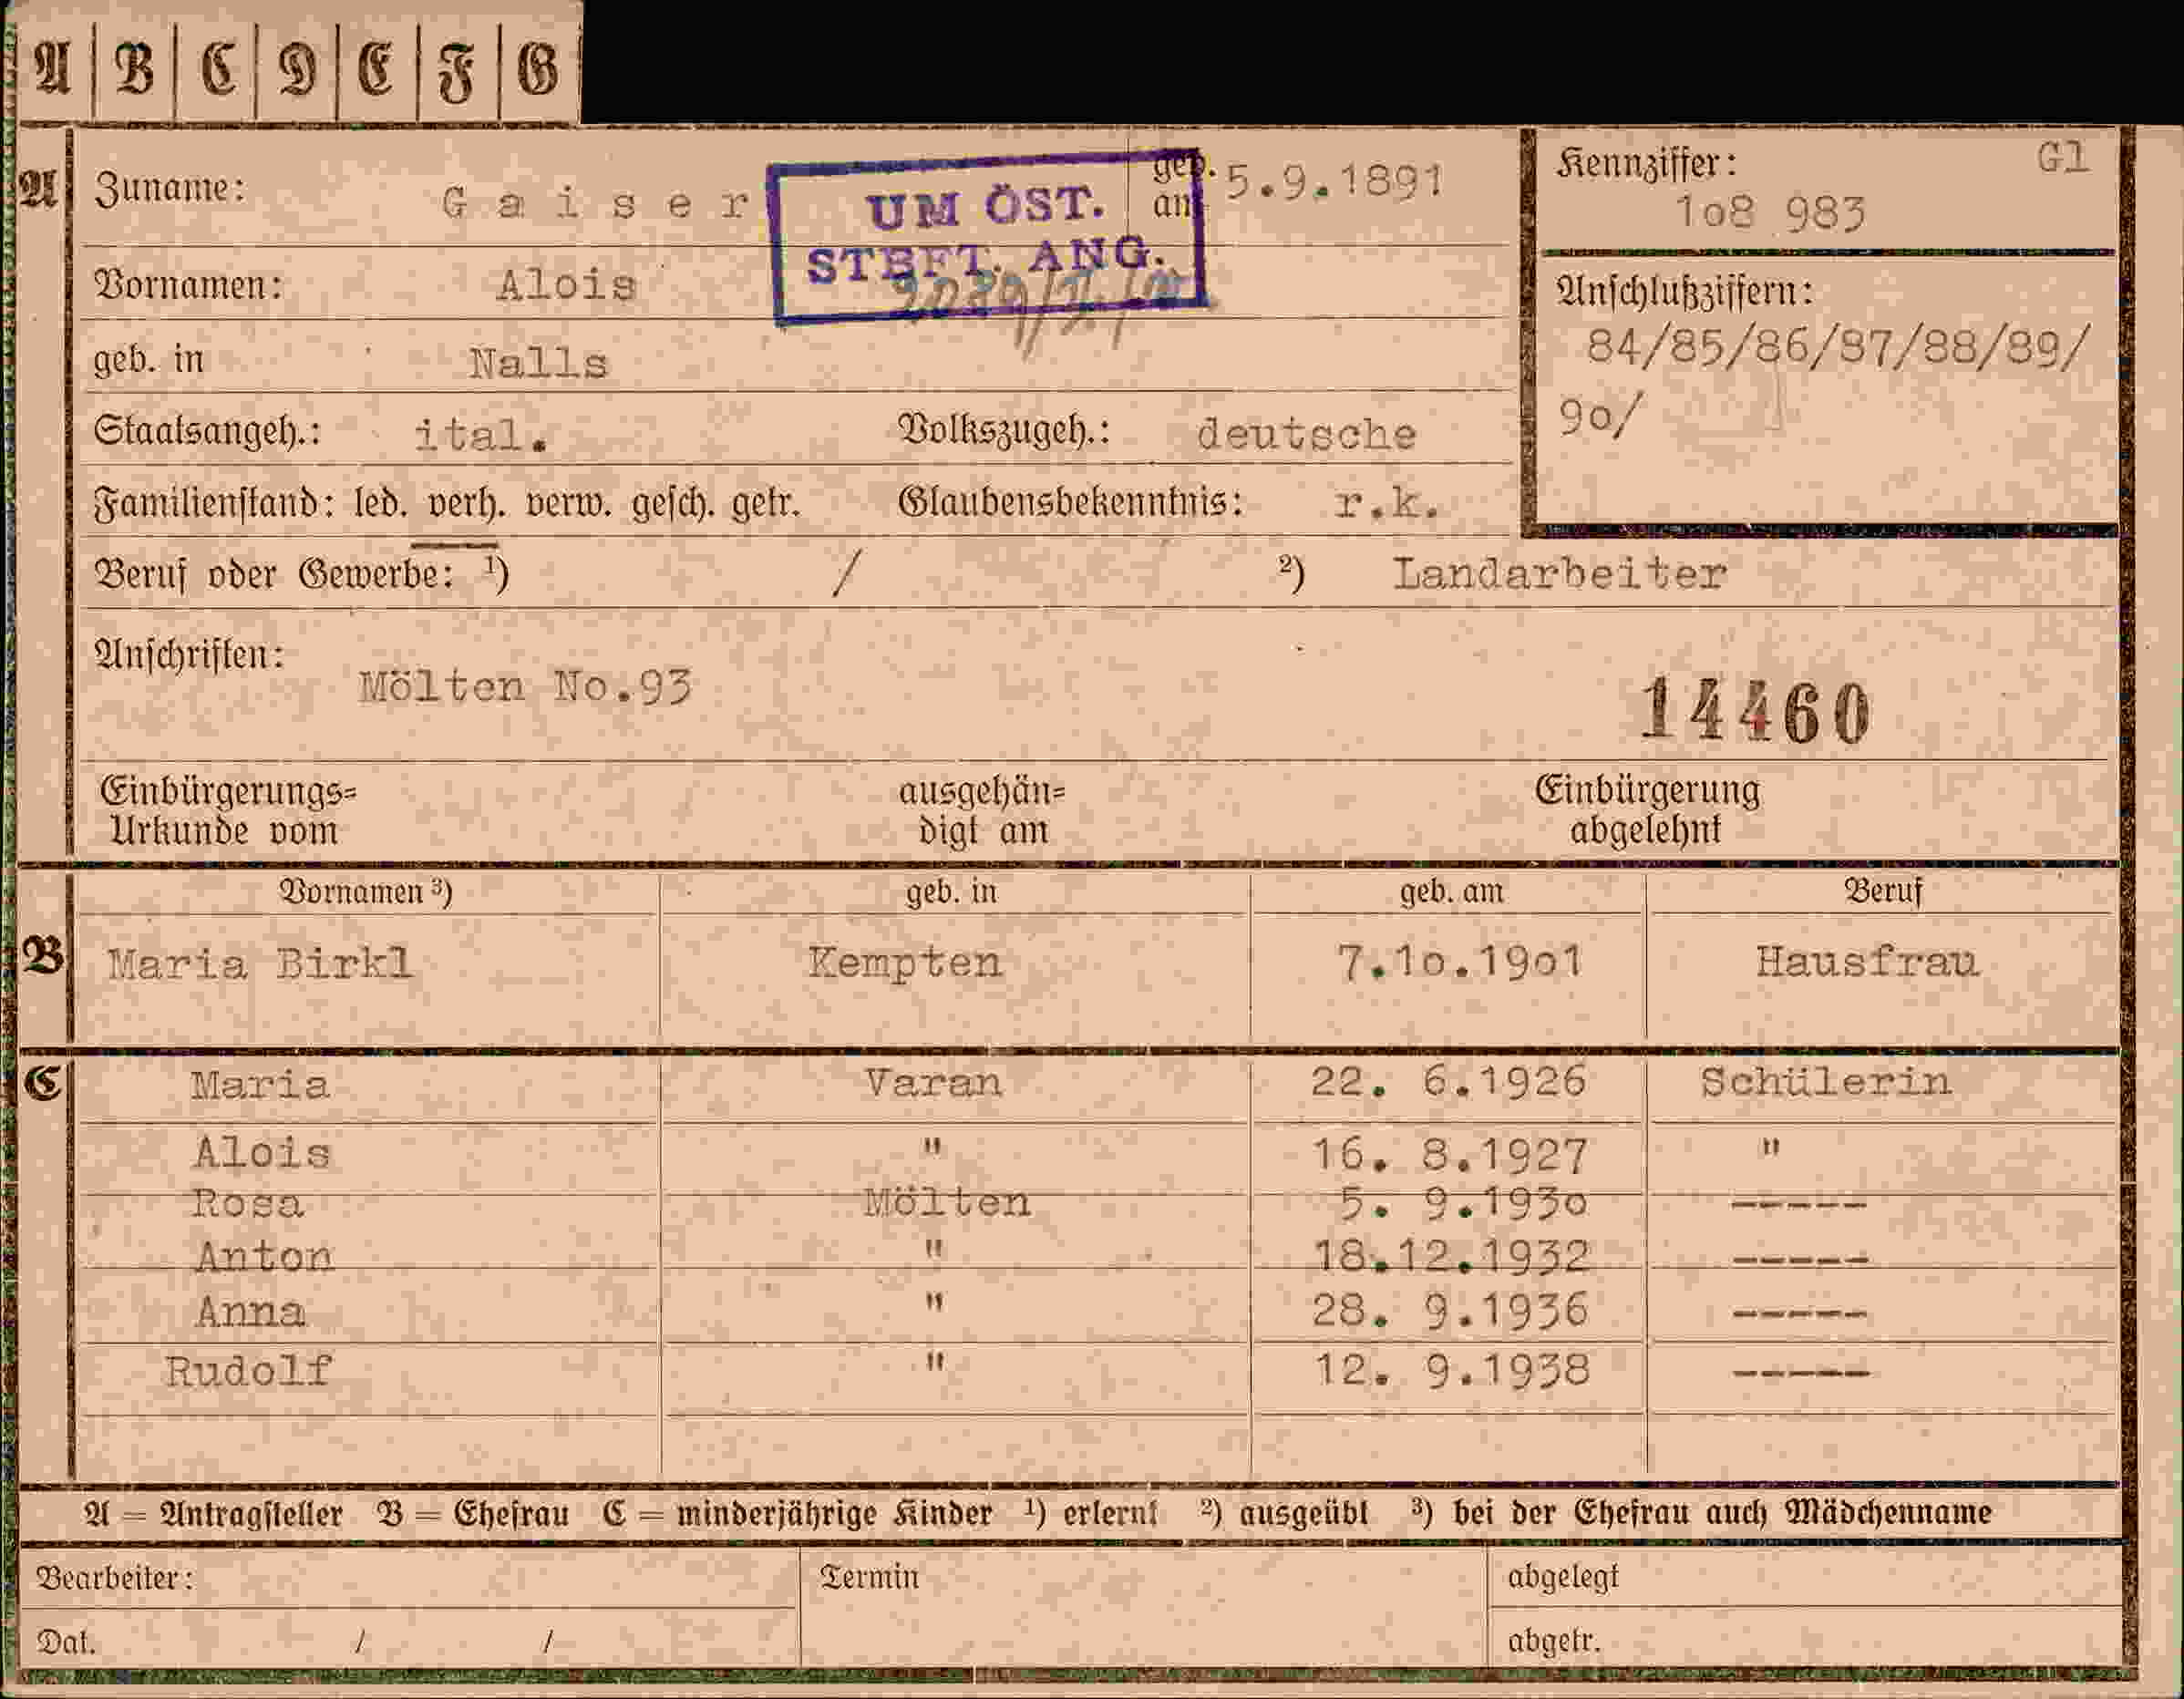 A B C D E F G
A Zuname: Gaiser geb. am 5.9.1891
UM ÖST.
STBFT. ANG.
Kennziffer: Gl
1o8 983
Vornamen: Alois
Anschlußziffern:
84/85/86/87/88/89/
9o/
geb. in Nalls
Staatsangeh.: ital. Volkszugeh.: deutsche
Familienstand: led. verh. verw. gesch. getr. Glaubensbekenntnis: r.k.
Beruf oder Gewerbe: ¹) / ²) Landarbeiter
Anschriften:
Mölten No.93
14460
Einbürgerungs= ausgehän= Einbürgerung
Urkunde vom digt am abgelehnt
Vornamen ³) geb. in geb. am Beruf
B Maria Birkl Kempten 7.1o.19o1 Hausfrau
C Maria Varan 22. 6.1926 Schülerin
Alois " 16. 8.1927 "
Rosa Mölten 5. 9.193o -----
Anton " 18.12.1932 -----
Anna " 28. 9.1936 -----
Rudolf " 12. 9.1938 -----
A = Antragsteller B = Ehefrau C = minderjährige Kinder ¹) erlernt ²) ausgeübt ³) bei der Ehefrau auch Mädchenname
Bearbeiter: Termin abgelegt
Dat. / / abgetr.